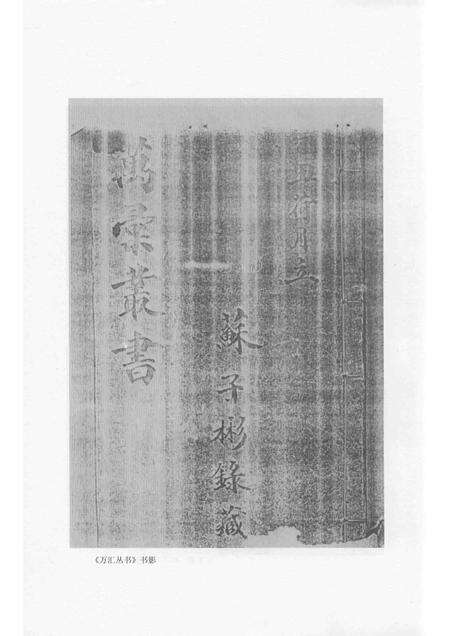 月立
蘇子彬錄藏
萬彙叢書
《万汇丛书》书影